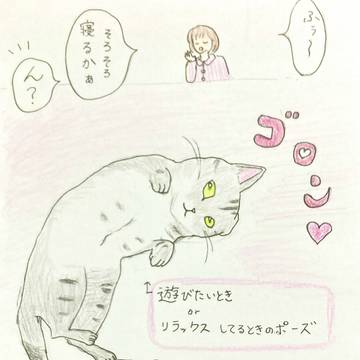 ふぅ〜
そろそろ
寝るかぁ
ん?
ゴロン
遊びたいとき
or
リラックスしてるときのポーズ